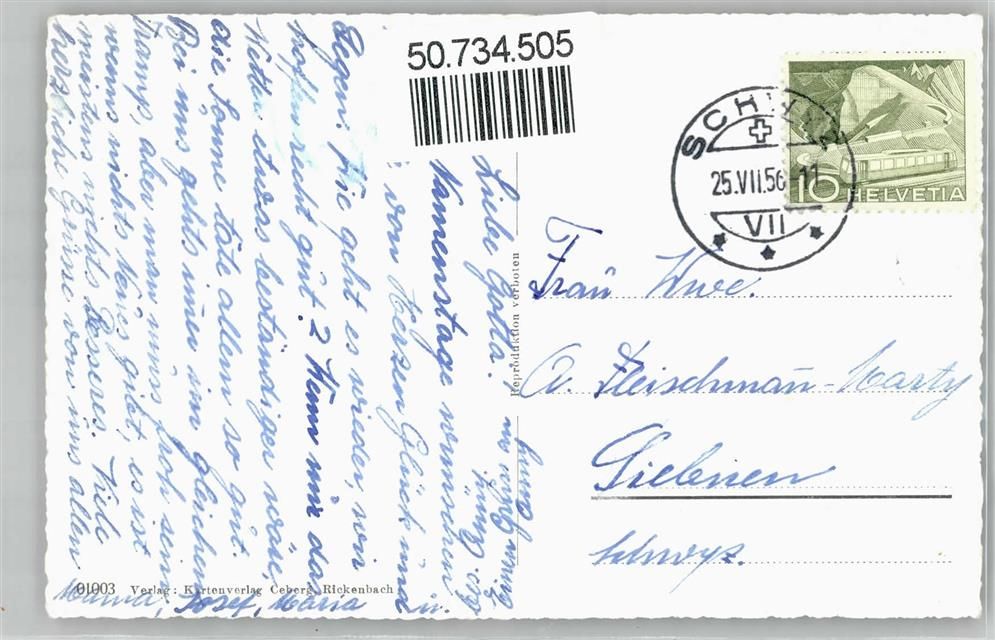 50.734.505
SCHWYZ
25.VII.56 11
VII
10 HELVETIA
Liebe Gotta.
Namenstage wünschen
von Herzen Glück und
Segen. Wie geht es wieder, wir
hoffen recht gut. Wenn nur das
Wetter etwas beständiger wäre,
die Sonne täte allen so gut.
Bei uns gehts immer im gleichen
Tramp, aber man muss froh sein
wenns nichts Neues giebt, es ist
meistens nichts Besseres. Viele
herzliche Grüsse von uns allen
Josef, Maria
Reproduktion verboten
01003 Verlag: Kartenverlag Ceberg, Rickenbach
Frau Wwe.
A. Fleischman̄-Marty
Siebnen
Schwyz.